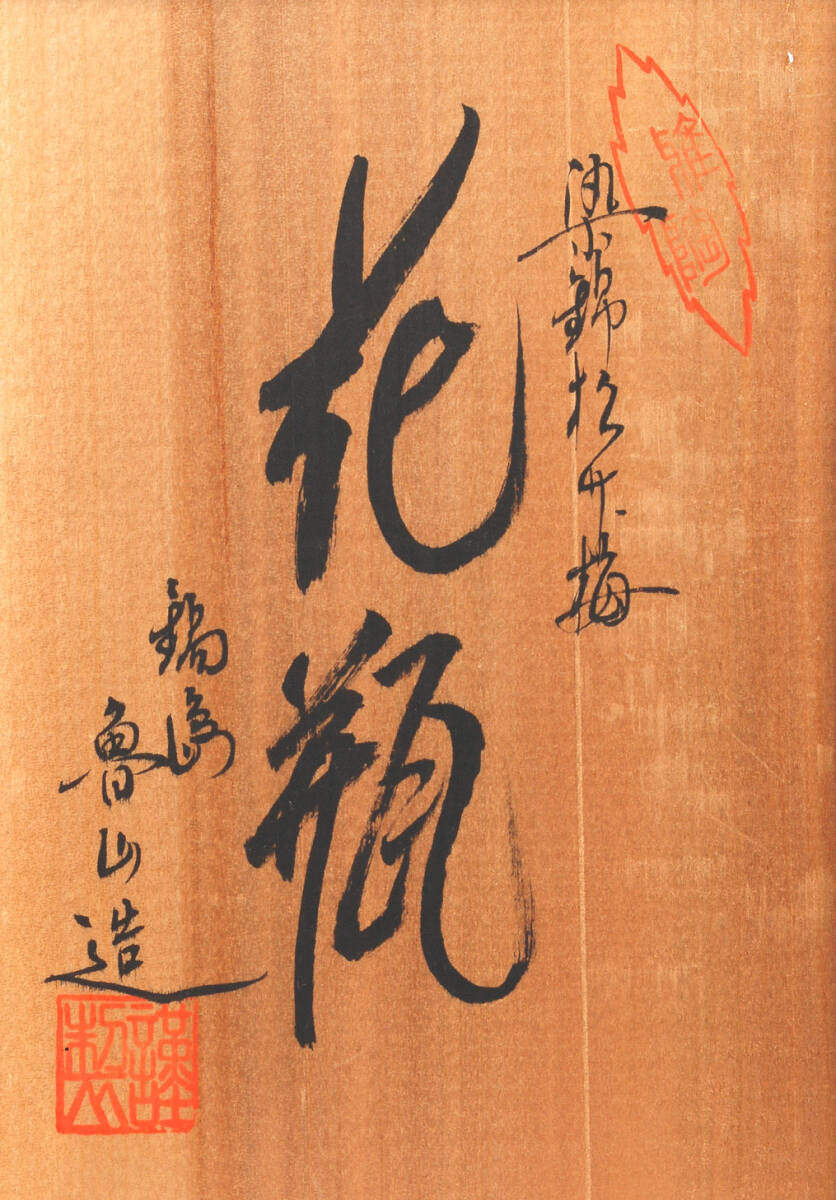 染錦松竹梅
花瓶
鍋島
魯山造
謹製